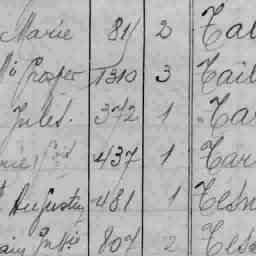 Marie 81 2 Tal
Prosper 1310 3 Tail
Jules. 372 1 Tar
437 1 Tar
Augustin 481 1 Tesn
807 2 Tess